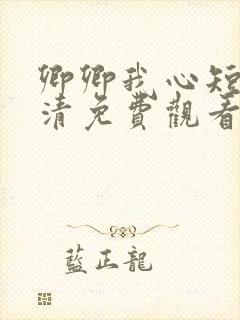 卿卿我心短
清免費觀看
藍正龍